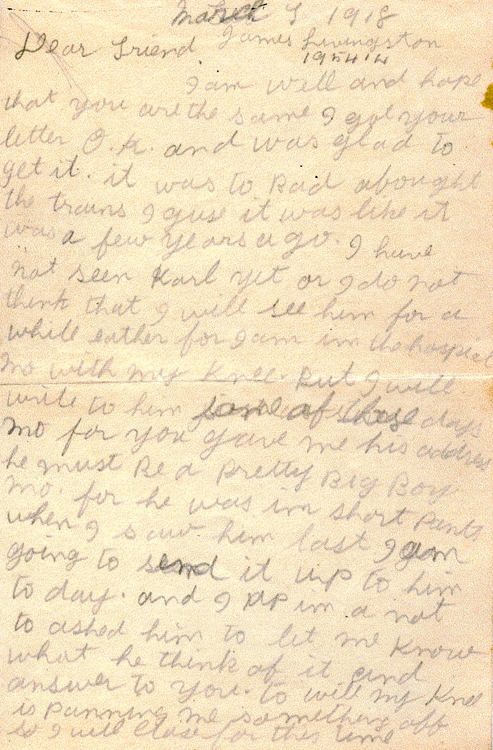 March 3 1918
Dear Friend James Livingston
195414
I am well and hope
that you are the same I got your
letter O.K. and was glad to
get it. it was to Bad abought
the trains I guse it was like it
was a few years ago. I have
not seen Karl yet or I do not
think that I will see him for a
while eather for I am in the hospital
mo with my Knee. But I will
write to him some of these days
mo for you gave me his address
he must Be a Pretty Big Boy
mo. for he was in short Pants
when I saw him last I am
going to send it up to him
to day. and I in a not
to ashed him to let me Know
what he think of it and
answer to you. to will my Knee
is panning me something off
so I will close for this time